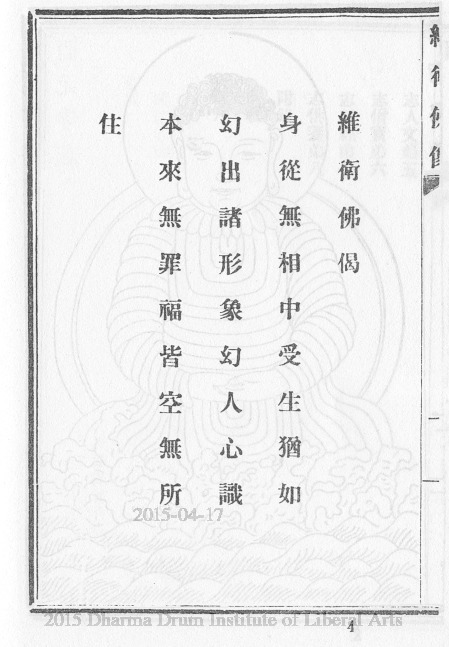 維衛佛偈
身從無相中受生猶如
幻出諸形象幻人心識
本來無罪福皆空無所
住
2015-04-17
2015 Dharma Drum Institute of Liberal Arts
4